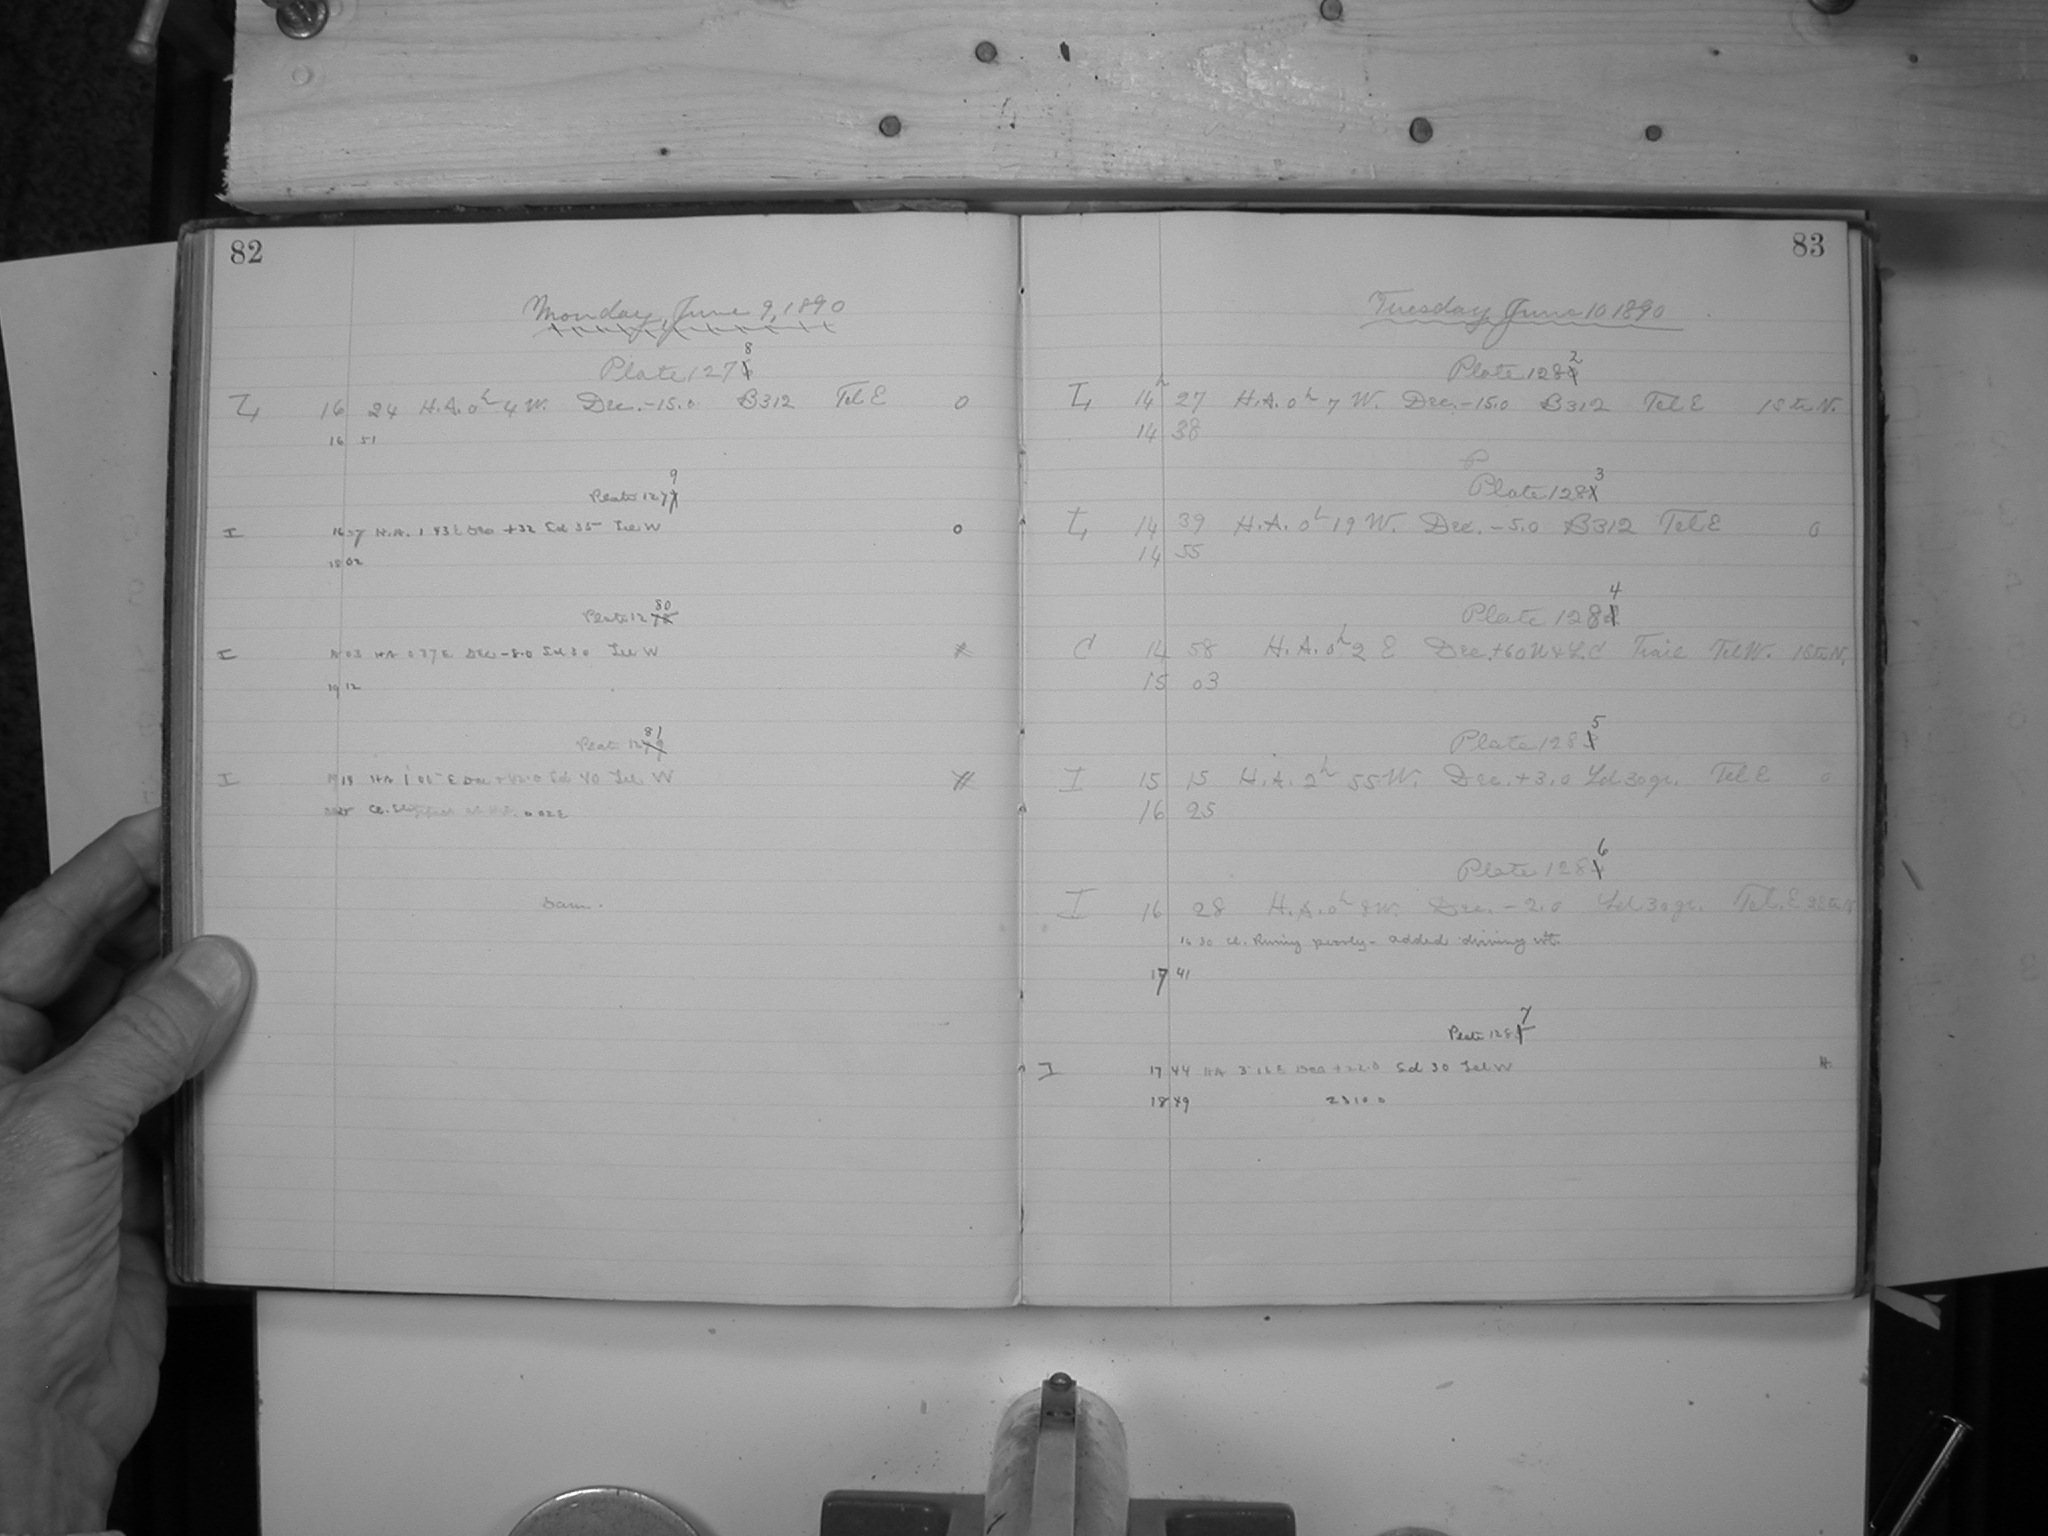 82
Monday, June 9, 1890
Plate 1278
I 16 24 H.A. 0h 4 W. Dec. -15.0 B312 Tel E 0
16 51
Plate 1279
I H.A. 1 53 E Dec +32 Sd 35 Tel W 0
18 02
Plate 1280
I 18 03 HA 0 37 E Dec -8.0 Sd 30 Tel W
19 12
Plate 1281
I 19 15 HA E Dec Sd 40 Tel W
Cl. Stopped at H.A. 0 02 E
Dawn.
83
Tuesday June 10 1890
Plate 1282
I 14h 27 H.A. 0h 7 W. Dec. -15.0 B312 Tel E 1St N.
14 38
P
Plate 1283
I 14 39 H.A. 0h 19 W. Dec. -5.0 B312 Tel E 0
14 55
Plate 1284
C 14 58 H.A. 0h 2 E Dec. +60 U & L.C Trail Tel W. 1St N.
15 03
Plate 1285
I 15 15 H.A. 2h 55 W. Dec. +3.0 Sd 30 gr. Tel E 0
16 25
Plate 1286
I 16 28 H.A. 0h 8 W. Dec. -2.0 Sd 30 gr. Tel. E
16 30 Cl. Runing poorly - added driving wt.
17 41
Plate 1287
I 17 44 HA 3 16 E Dec +22.0 Sd 30 Tel W
18 49 23100